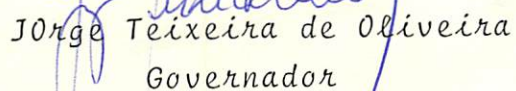 JOrge Teixeira de Oliveira
Governador